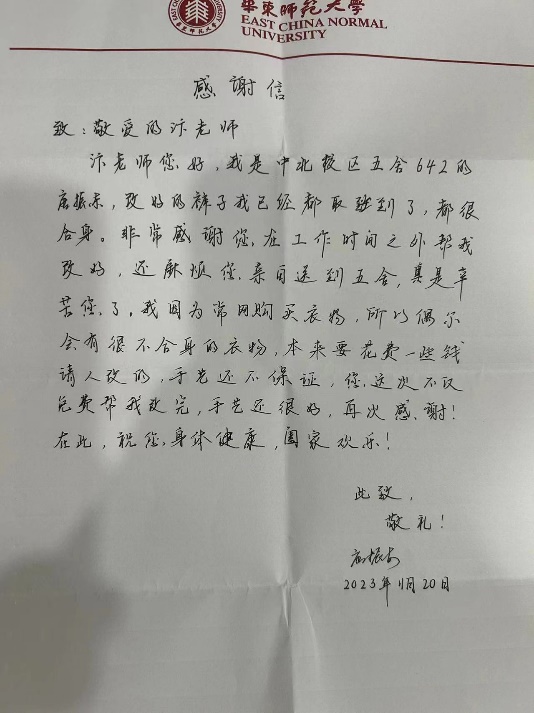 華東師範大學
EAST CHINA NORMAL
UNIVERSITY
感谢信
致:敬爱的汴老师
汴老师您好,我是中北校区五舍642的
唐振东,改好的裤子我已经都取到了,都很
合身。非常感谢您,在工作时间之外帮我
改好,还麻烦您,亲自送到五舍,真是辛
苦您了。我因为常网购买衣物,所以偶尔
会有很不合身的衣物,本来要花费一些钱
请人改的,手艺还不保证,您,这次不仅
免费帮我改完,手艺还很好,再次感谢!
在此,祝您,身体健康,阖家欢乐!
此致,
敬礼!
2023年11月20日